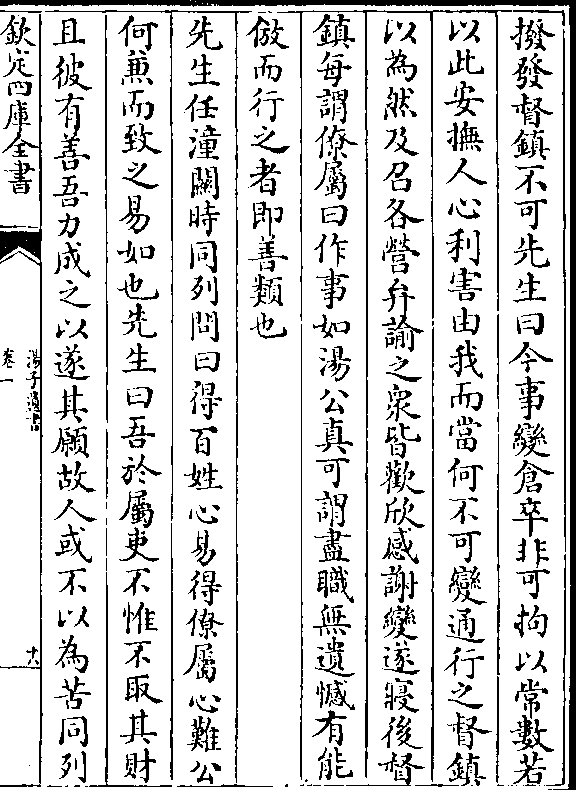 撥發督鎮不可先生曰今事變倉卒非可拘以常數若
以此安撫人心利害由我而當何不可變通行之督鎮
以為然及召各營弁諭之衆皆歡欣感謝變遂寢後督
鎮每謂僚屬曰作事如湯公真可謂盡職無遺憾有能
倣而行之者即善類也
先生任潼關時同列問曰得百姓心易得僚屬心難公
何兼而致之易如也先生曰吾於屬吏不惟不取其財
且彼有善吾力成之以遂其願故人或不以為苦同列
欽定四庫全書
湯子遺書
卷一
十八